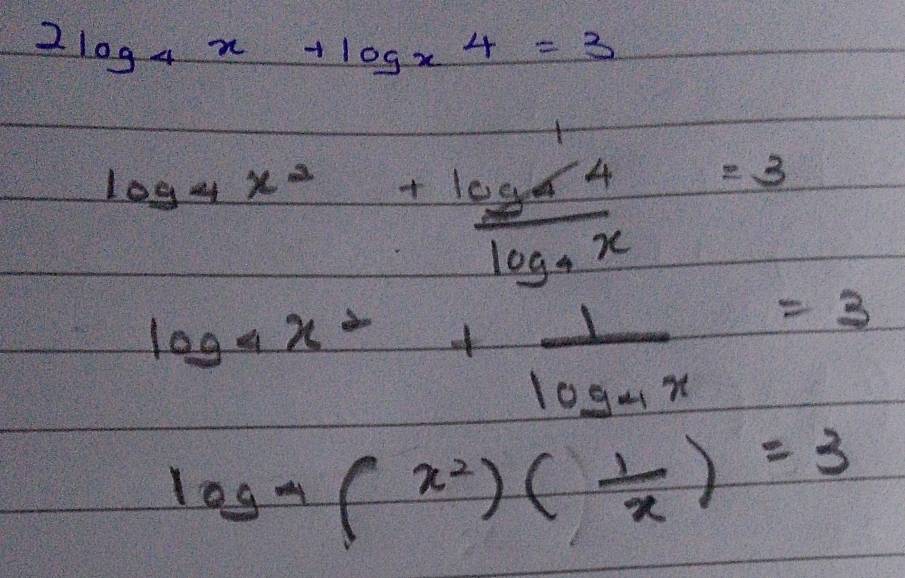 2 log₄ x + logₓ 4 = 3
log₄ x² + log₄ 4 / log₄ x = 3
1
log₄ x² + 1 / log₄ x = 3
log₄ ( x² ) ( 1 / x ) = 3